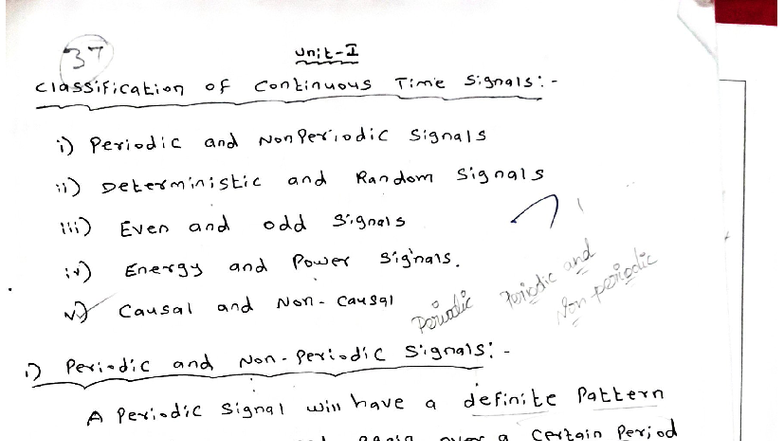 37
Unit-I
Classification of Continuous Time Signals:-
i) Periodic and NonPeriodic Signals
ii) Deterministic and Random Signals
iii) Even and odd Signals
iv) Energy and Power Signals.
v) Causal and Non-Causal
Periodic Periodic and
Non-periodic
i) Periodic and Non-Periodic Signals:-
A Periodic Signal will have a definite Pattern
again over a certain Period